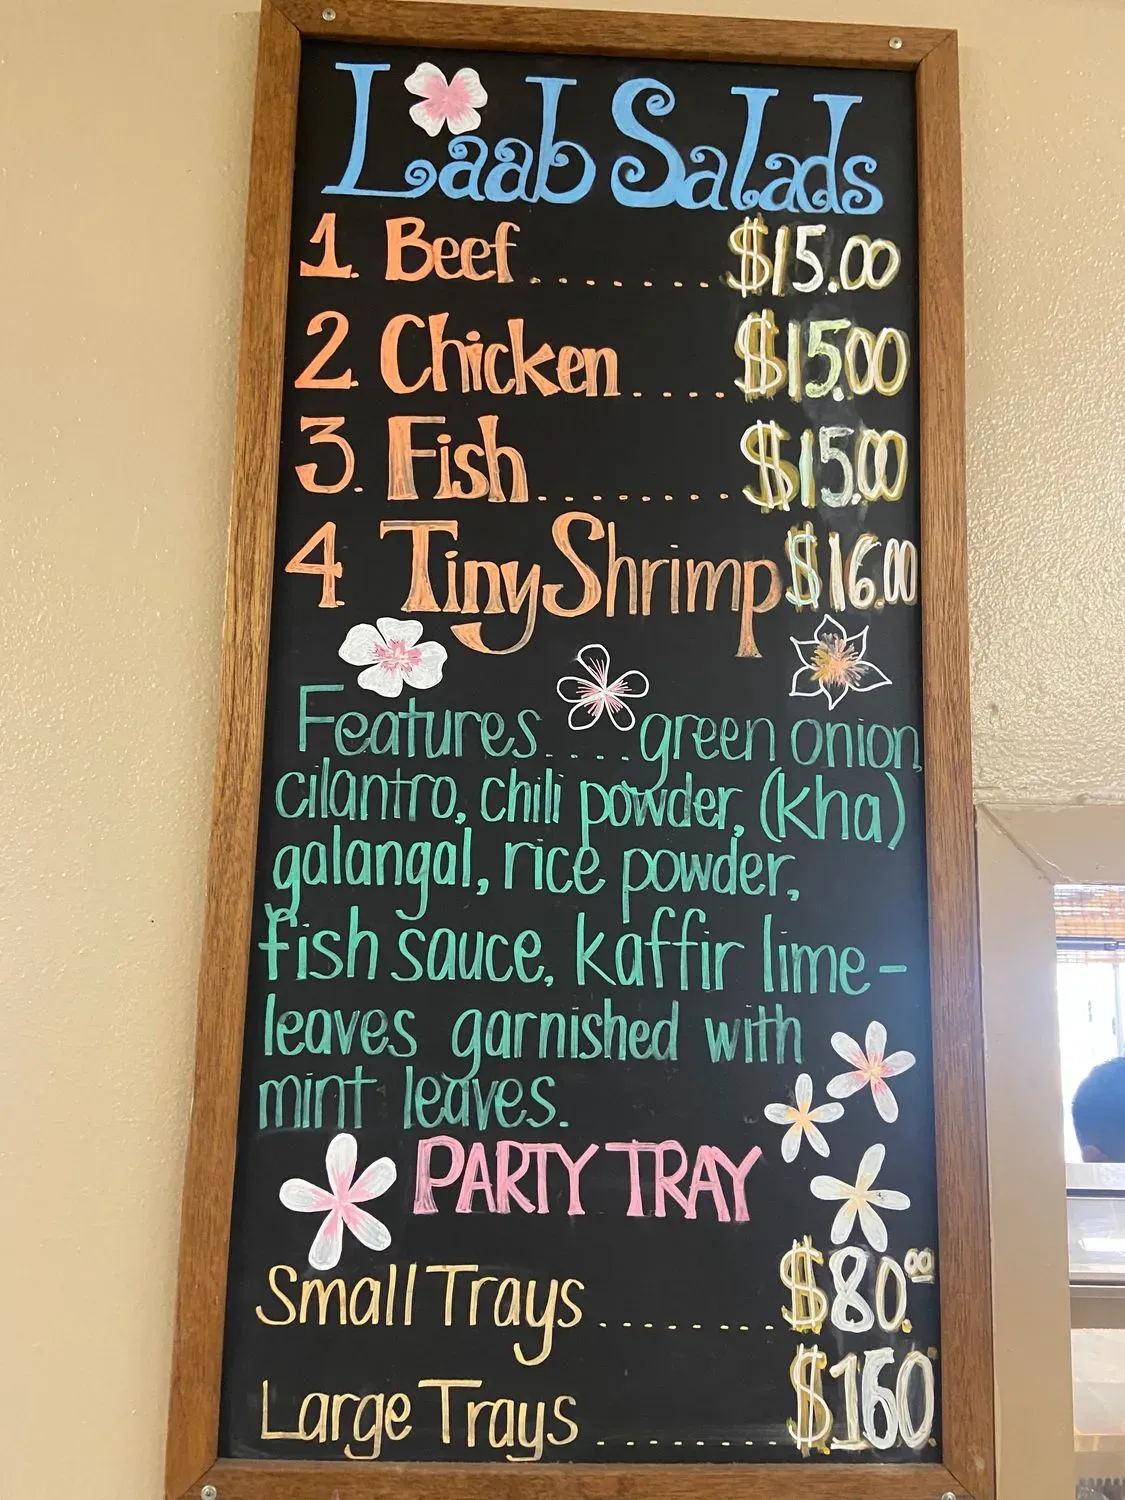 Laab Salads
1. Beef........ $15.00
2. Chicken.... $15.00
3. Fish......... $15.00
4 Tiny Shrimp $16.00
Features.....green onion,
cilantro, chili powder, (kha)
galangal, rice powder,
fish sauce, kaffir lime-
leaves garnished with
mint leaves.
PARTY TRAY
Small Trays ........ $80.00
Large Trays ........ $160.